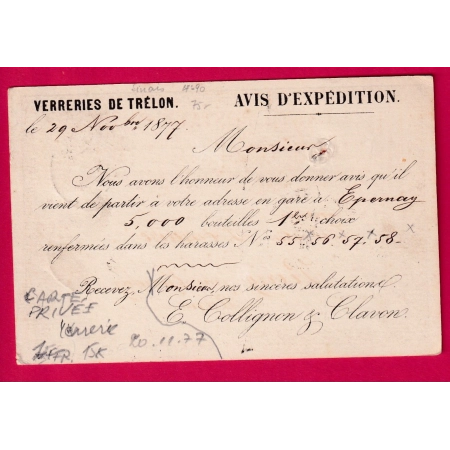 VERRERIES DE TRÉLON. AVIS D'EXPÉDITION.
le 29 Novbre 1877
Monsieur
Nous avons l'honneur de vous donner avis qu'il
vient de partir à votre adresse en gare à Epernay
5,000 bouteilles 1er choix
renfermées dans les harasses Nos 55 56 57 58
Recevez, Monsieur, nos sincères salutations
E. Collignon & Clavon.
CARTE
PRIVEE
Verrerie
20.11.77